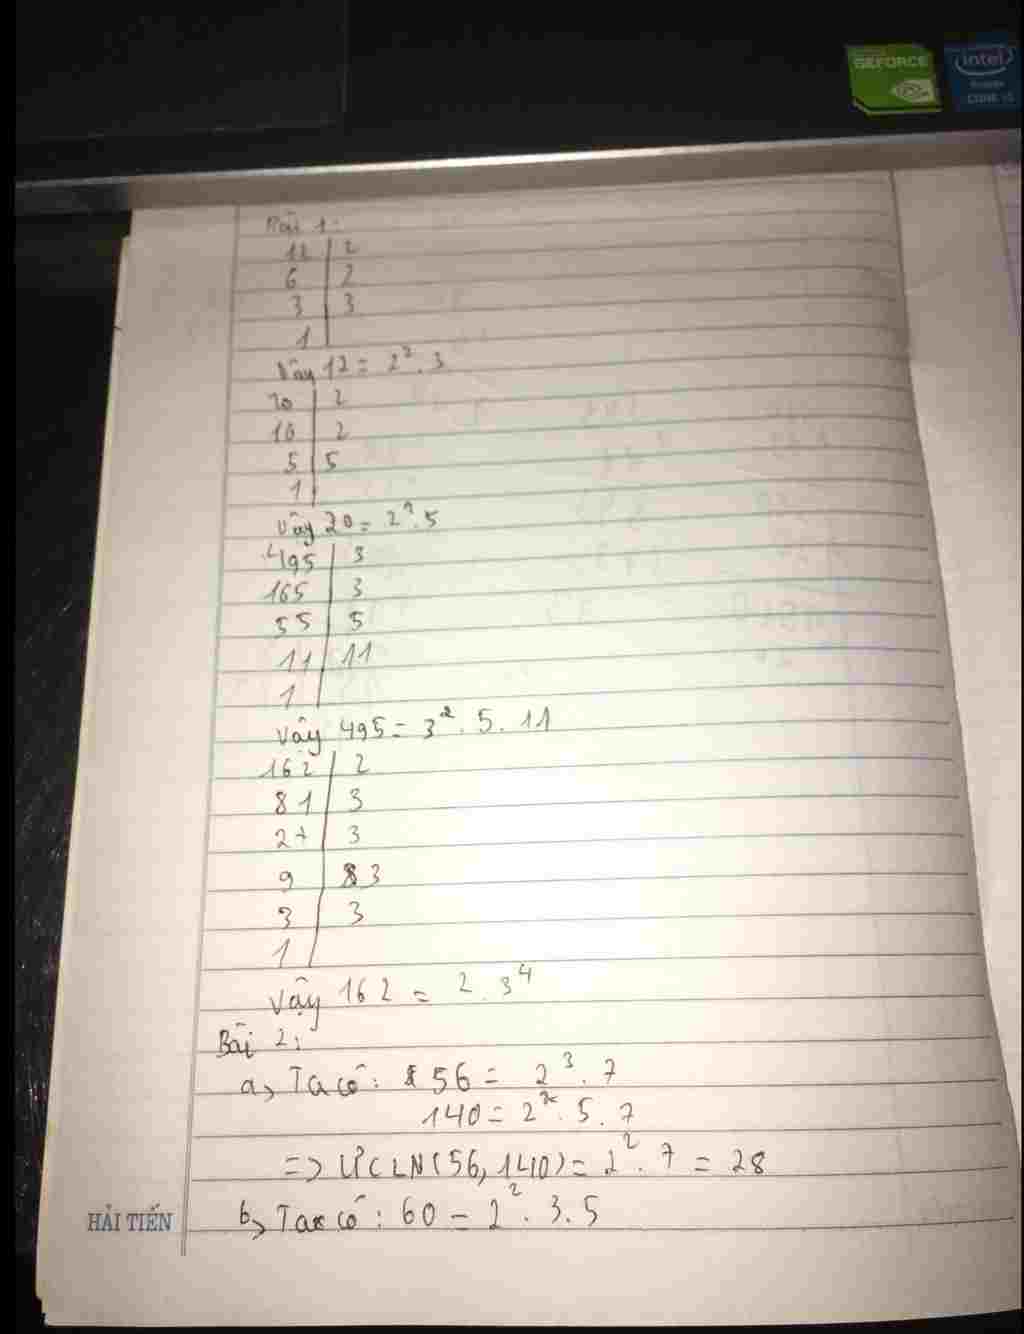 GEFORCE
intel
CORE i5
Bài 1:
12 | 2
6 | 2
3 | 3
1 |
Vậy 12 = 2². 3
20 | 2
10 | 2
5 | 5
1 |
Vậy 20 = 2². 5
495 | 3
165 | 3
55 | 5
11 | 11
1 |
Vậy 495 = 3². 5. 11
162 | 2
81 | 3
27 | 3
9 | 3
3 | 3
1 |
Vậy 162 = 2. 3⁴
Bài 2:
a, Ta có: 56 = 2³. 7
140 = 2². 5. 7
=> ƯCLN(56, 140) = 2². 7 = 28
b, Ta có: 60 = 2². 3. 5
HẢI TIẾN